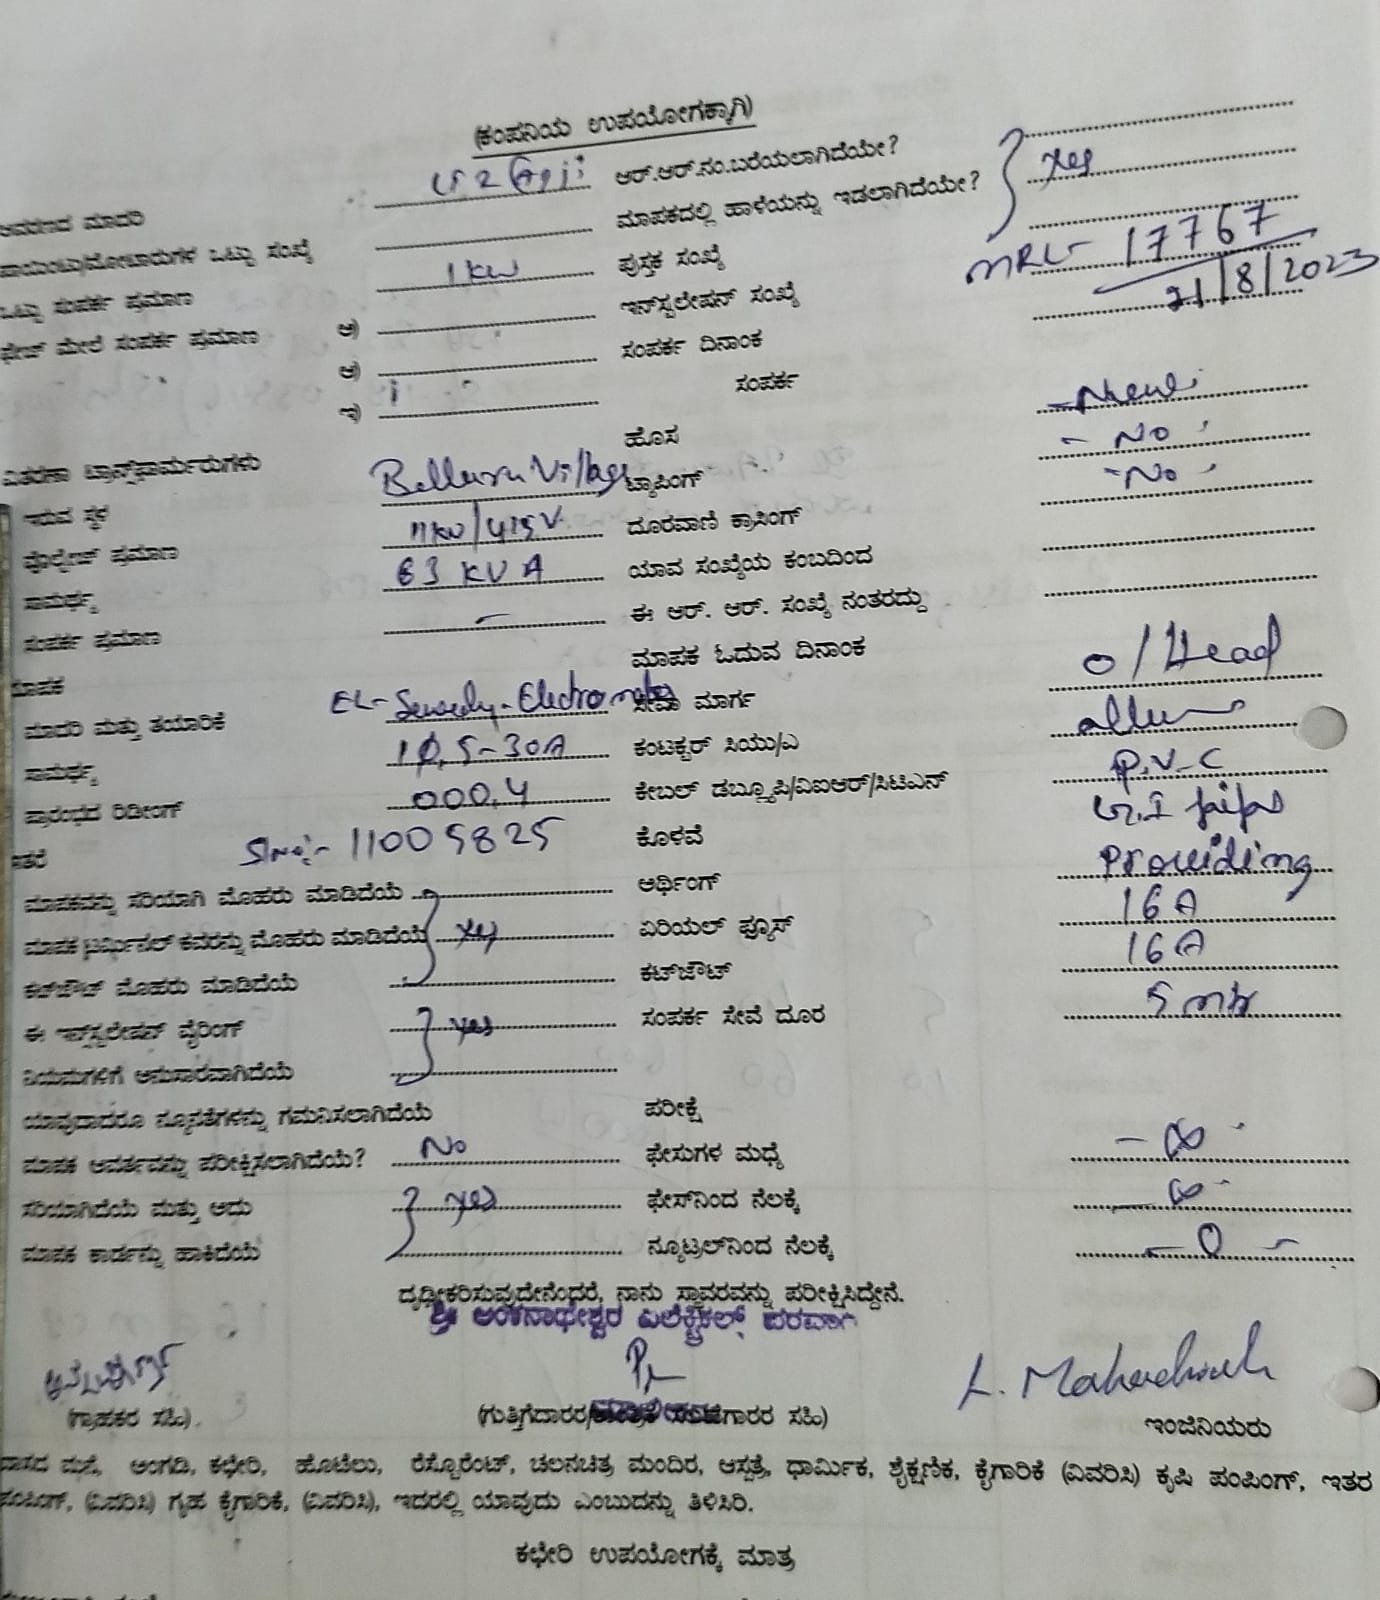 (ಕಂಪನಿಯ ಉಪಯೋಗಕ್ಕಾಗಿ)
ಆವರಣದ ಮಾದರಿ ಆರ್.ಆರ್.ನಂ.ಬರೆಯಲಾಗಿದೆಯೇ? Yes
ಪಾಯಿಂಟು/ಮೋಟಾರುಗಳ ಒಟ್ಟು ಸಂಖ್ಯೆ ಮಾಪಕದಲ್ಲಿ ಹಾಳೆಯನ್ನು ಇಡಲಾಗಿದೆಯೇ?
ಒಟ್ಟು ಸಂಪರ್ಕ ಪ್ರಮಾಣ 1 KW ಪುಸ್ತಕ ಸಂಖ್ಯೆ 17767
ಫೇಜ್ ಮೇಲೆ ಸಂಪರ್ಕ ಪ್ರಮಾಣ ಅ) ಇನ್‌ಸ್ಟಲೇಷನ್ ಸಂಖ್ಯೆ 21/8/2023
ಆ) ಸಂಪರ್ಕ ದಿನಾಂಕ
ಇ) ಸಂಪರ್ಕ
ವಿತರಣಾ ಟ್ರಾನ್ಸ್‌ಫಾರ್ಮರುಗಳು ಹೊಸ New
ಇರುವ ಸ್ಥಳ Belluru Village ಟ್ಯಾಪಿಂಗ್ - No
ವೋಲ್ಟೇಜ್ ಪ್ರಮಾಣ 11KV/415V ದೂರವಾಣಿ ಕ್ರಾಸಿಂಗ್ - No
ಸಾಮರ್ಥ್ಯ 63 KVA ಯಾವ ಸಂಖ್ಯೆಯ ಕಂಬದಿಂದ
ಸಂಪರ್ಕ ಪ್ರಮಾಣ - ಈ ಆರ್. ಆರ್. ಸಂಖ್ಯೆ ನಂತರದ್ದು
ಮಾಪಕ ಮಾಪಕ ಓದುವ ದಿನಾಂಕ
ಮಾದರಿ ಮತ್ತು ತಯಾರಿಕೆ ಸೇವಾ ಮಾರ್ಗ o/Head
ಸಾಮರ್ಥ್ಯ 1Φ, 5-30A ಕಂಟಕ್ಟರ್ ಸಿಯು/ಎ
ಪ್ರಾರಂಭದ ರಿಡೀಂಗ್ 000.4 ಕೇಬಲ್ ಡಬ್ಲ್ಯೂಪಿ/ವಿಐಆರ್/ಸಿಟಿಎನ್ P.V.C
ಇತರೆ Slno:- 11005825 ಕೊಳವೆ G.I pipe
ಮಾಪಕವನ್ನು ಸರಿಯಾಗಿ ಮೊಹರು ಮಾಡಿದೆಯೆ ಅರ್ಥಿಂಗ್ Providing
ಮಾಪಕ ಟರ್ಮಿನಲ್ ಕವರನ್ನು ಮೊಹರು ಮಾಡಿದೆಯೆ Yes ಏರಿಯಲ್ ಫ್ಯೂಸ್ 16A
ಕಟ್‌ಔಟ್ ಮೊಹರು ಮಾಡಿದೆಯೆ ಕಟ್‌ಔಟ್ 16A
ಈ ಇನ್‌ಸ್ಟಲೇಷನ್ ವೈರಿಂಗ್ Yes ಸಂಪರ್ಕ ಸೇವೆ ದೂರ 5 mtr
ನಿಯಮಗಳಿಗೆ ಅನುಸಾರವಾಗಿದೆಯೆ
ಯಾವುದಾದರೂ ನ್ಯೂನತೆಗಳನ್ನು ಗಮನಿಸಲಾಗಿದೆಯೆ ಪರೀಕ್ಷೆ
ಮಾಪಕ ಆವರ್ತವನ್ನು ಪರೀಕ್ಷಿಸಲಾಗಿದೆಯೆ? No ಫೇಸುಗಳ ಮಧ್ಯೆ - ∞ -
ಸರಿಯಾಗಿದೆಯೆ ಮತ್ತು ಅದು Yes ಫೇಸ್‌ನಿಂದ ನೆಲಕ್ಕೆ - ∞ -
ಮಾಪಕ ಕಾರ್ಡನ್ನು ಹಾಕಿದೆಯೆ ನ್ಯೂಟ್ರಲ್‌ನಿಂದ ನೆಲಕ್ಕೆ - 0 -
ದೃಢೀಕರಿಸುವುದೇನೆಂದರೆ, ನಾನು ಸ್ಥಾವರವನ್ನು ಪರೀಕ್ಷಿಸಿದ್ದೇನೆ.
ಶ್ರೀ ಅಂಕನಾಥೇಶ್ವರ ಎಲೆಕ್ಟ್ರಿಕಲ್ಸ್ ಪರವಾಗಿ
(ಗ್ರಾಹಕರ ಸಹಿ) (ಗುತ್ತಿಗೆದಾರರ ಸಹಿ) ಇಂಜಿನಿಯರು
ವಾಸದ ಮನೆ, ಅಂಗಡಿ, ಕಛೇರಿ, ಹೊಟೆಲು, ರೆಸ್ಟೊರೆಂಟ್, ಚಲನಚಿತ್ರ ಮಂದಿರ, ಆಸ್ಪತ್ರೆ, ಧಾರ್ಮಿಕ, ಶೈಕ್ಷಣಿಕ, ಕೈಗಾರಿಕೆ (ವಿವರಿಸಿ) ಕೃಷಿ ಪಂಪಿಂಗ್, ಇತರ
ಪಂಪಿಂಗ್, (ವಿವರಿಸಿ) ಗೃಹ ಕೈಗಾರಿಕೆ, (ವಿವರಿಸಿ), ಇದರಲ್ಲಿ ಯಾವುದು ಎಂಬುದನ್ನು ತಿಳಿಸಿರಿ.
ಕಛೇರಿ ಉಪಯೋಗಕ್ಕೆ ಮಾತ್ರ